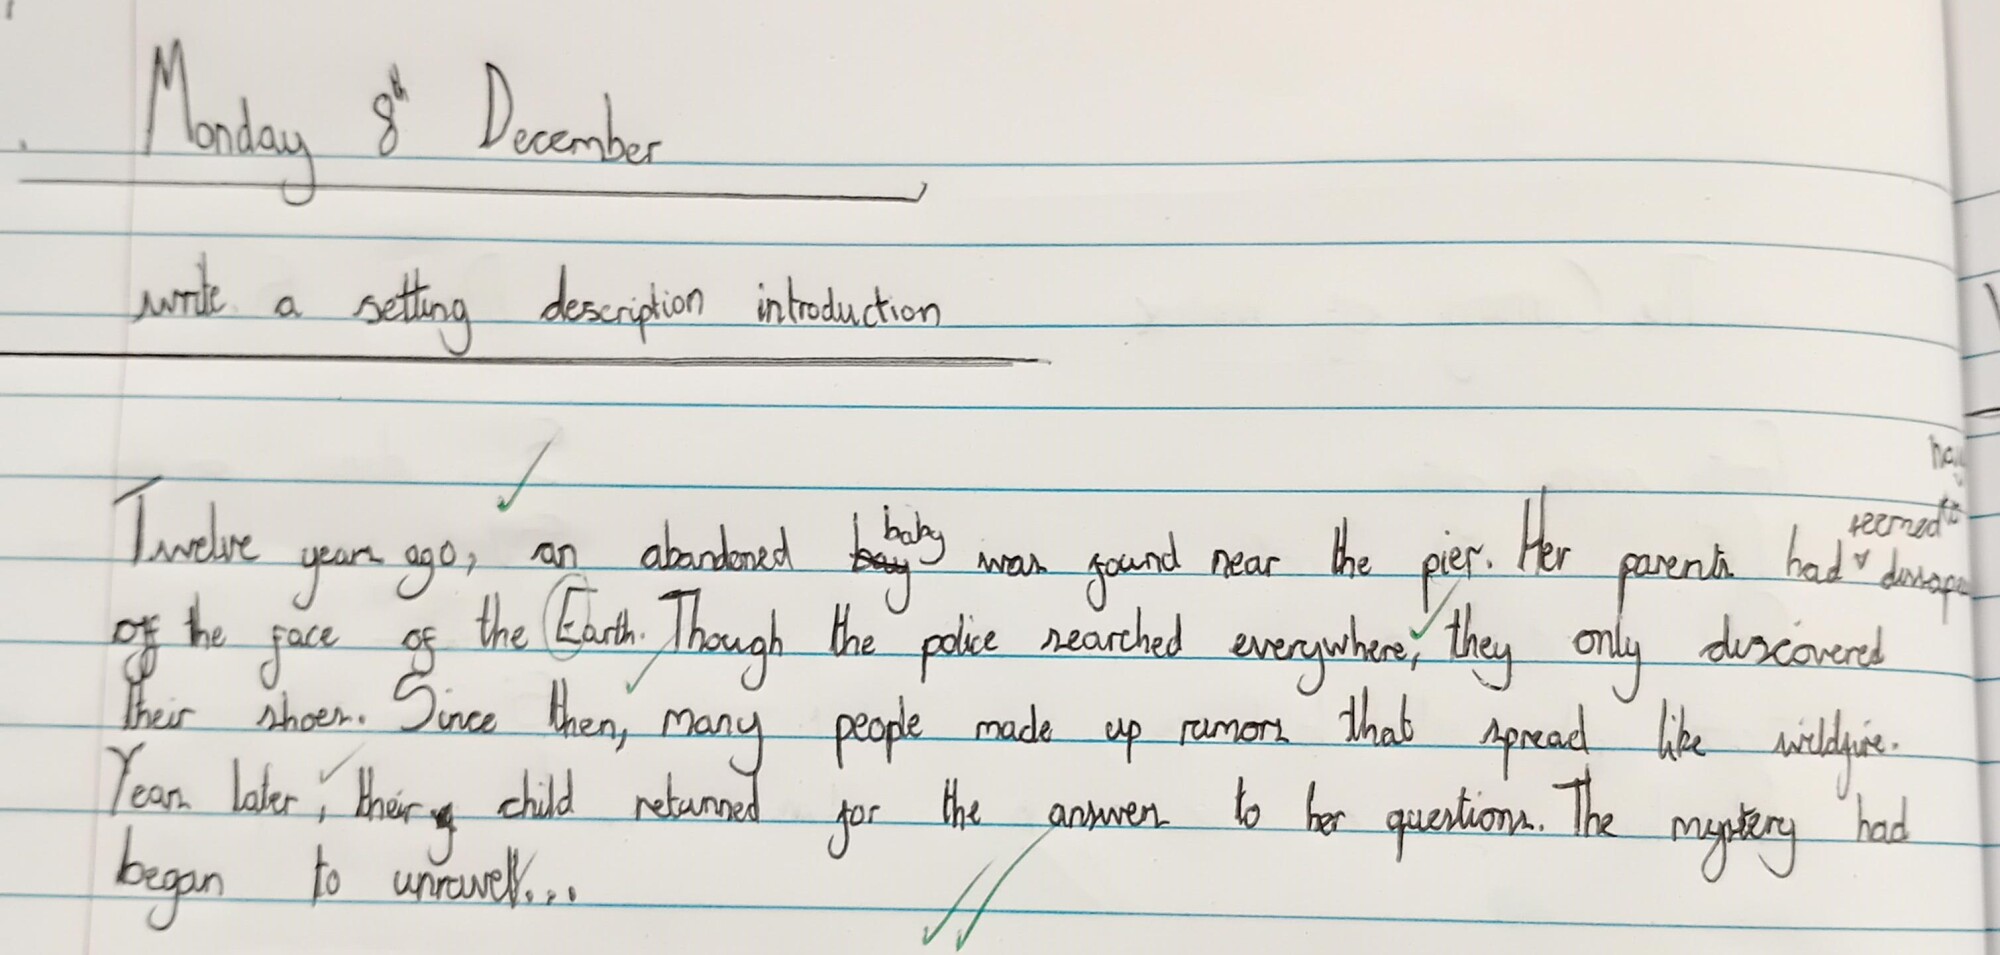 Monday 8th December
write a setting description introduction
ha
seemed to
Twelve years ago, an abandoned bay baby was found near the pier. Her parents had dissape
off the face of the Earth. Though the police searched everywhere, they only discovered
their shoes. Since then, many people made up rumors that spread like wildfire.
Years later, their child returned for the answers to her questions. The mystery had
began to unravel...